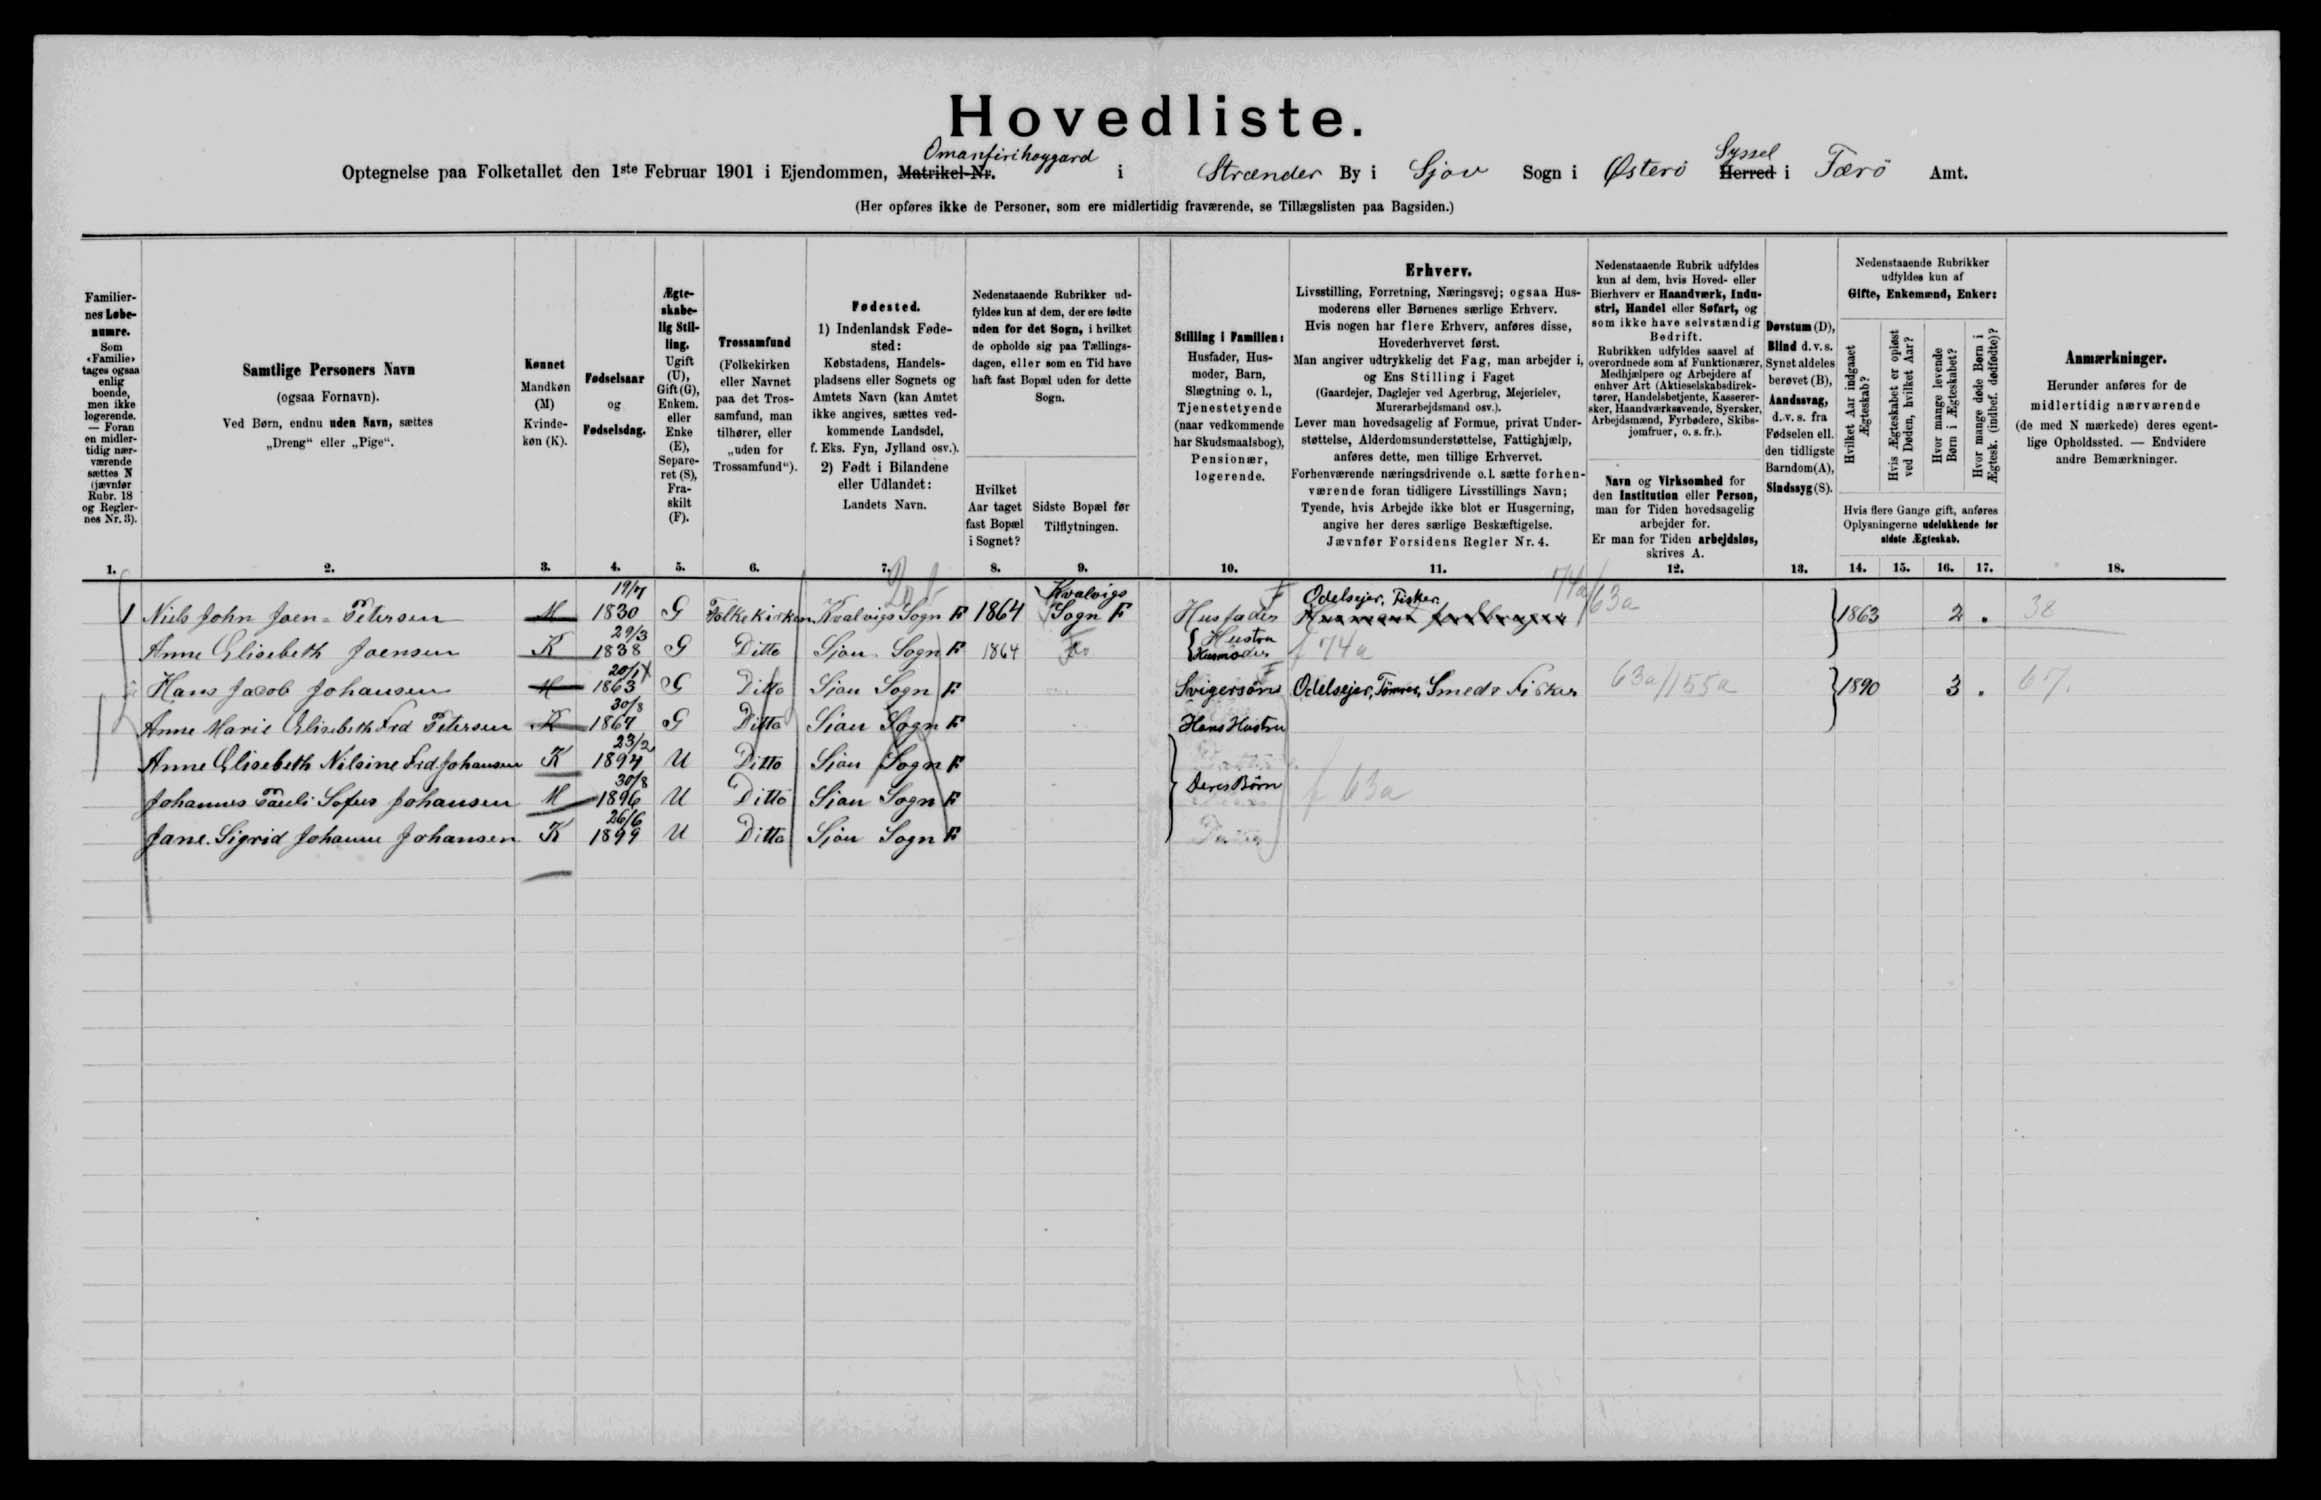 Hovedliste.
Optegnelse paa Folketallet den 1ste Februar 1901 i Ejendommen, Matrikel-Nr. Omanfirihoygard i Strænder By i Sjov Sogn i Østerö Herred Syssel i Færö Amt.
(Her opføres ikke de Personer, som ere midlertidig fraværende, se Tillægslisten paa Bagsiden.)
Familiernes Løbenumre.
Som «Familie» tages ogsaa enlig boende, men ikke logerende. — Foran en midlertidig nærværende sættes N (jævnfør Rubr. 18 og Reglernes Nr. 3).
Samtlige Personers Navn
(ogsaa Fornavn).
Ved Børn, endnu uden Navn, sættes
„Dreng“ eller „Pige“.
Kønnet
Mandkøn (M)
Kvindekøn (K).
Fødselsaar
og
Fødselsdag.
Ægteskabelig Stilling.
Ugift (U), Gift (G), Enkem. eller Enke (E), Separeret (S), Fraskilt (F).
Trossamfund
(Folkekirken eller Navnet paa det Trossamfund, man tilhører, eller „uden for Trossamfund“).
Fødested.
1) Indenlandsk Fødested:
Købstadens, Handelspladsens eller Sognets og Amtets Navn (kan Amtet ikke angives, sættes vedkommende Landsdel, f. Eks. Fyn, Jylland osv.).
2) Født i Bilandene eller Udlandet:
Landets Navn.
Nedenstaaende Rubrikker udfyldes kun af dem, der ere fødte uden for det Sogn, i hvilket de opholde sig paa Tællingsdagen, eller som en Tid have haft fast Bopæl uden for dette Sogn.
Hvilket Aar taget fast Bopæl i Sognet?
Sidste Bopæl før Tilflytningen.
Stilling i Familien:
Husfader, Husmoder, Barn, Slægtning o. l., Tjenestetyende (naar vedkommende har Skudsmaalsbog), Pensionær, logerende.
Erhverv.
Livsstilling, Forretning, Næringsvej; ogsaa Husmoderens eller Børnenes særlige Erhverv.
Hvis nogen har flere Erhverv, anføres disse, Hovederhvervet først.
Man angiver udtrykkelig det Fag, man arbejder i, og Ens Stilling i Faget
(Gaardejer, Daglejer ved Agerbrug, Mejerielev, Murerarbejdsmand osv.).
Lever man hovedsagelig af Formue, privat Understøttelse, Alderdomsunderstøttelse, Fattighjælp, anføres dette, men tillige Erhvervet.
Forhenværende næringsdrivende o. l. sætte forhenværende foran tidligere Livsstillings Navn;
Tyende, hvis Arbejde ikke blot er Husgerning, angive her deres særlige Beskæftigelse.
Jævnfør Forsidens Regler Nr. 4.
Nedenstaaende Rubrik udfyldes kun af dem, hvis Hoved- eller Bierhverv er Haandværk, Industri, Handel eller Søfart, og som ikke have selvstændig Bedrift.
Rubrikken udfyldes saavel af overordnede som af Funktionærer, Medhjælpere og Arbejdere af enhver Art (Aktieselskabsdirektører, Handelsbetjente, Kasserersker, Haandværkssvende, Syersker, Arbejdsmænd, Fyrbødere, Skibsjomfruer, o. s. fr.).
Navn og Virksomhed for den Institution eller Person, man for Tiden hovedsagelig arbejder for.
Er man for Tiden arbejdsløs, skrives A.
Døvstum (D), Blind d. v. s. Synet aldeles berøvet (B), Aandssvag, d. v. s. fra Fødselen ell. den tidligste Barndom (A), Sindssyg (S).
Nedenstaaende Rubrikker udfyldes kun af
Gifte, Enkemænd, Enker:
Hvilket Aar indgaaet Ægteskab?
Hvis Ægteskabet er opløst ved Døden, hvilket Aar?
Hvor mange levende Børn i Ægteskabet?
Hvor mange døde Børn i Ægtesk. (indbef. dødfødte)?
Hvis flere Gange gift, anføres Oplysningerne udelukkende for sidste Ægteskab.
Anmærkninger.
Herunder anføres for de midlertidig nærværende (de med N mærkede) deres egentlige Opholdssted. — Endvidere andre Bemærkninger.
1. 2. 3. 4. 5. 6. 7. 8. 9. 10. 11. 12. 13. 14. 15. 16. 17. 18.
1 Niels John Joen-Petersen M 19/7 1830 G Folkekirken Kvalvigs Sogn F 1864 Kvalvigs Sogn F Husfader Odelsejer, Fisker. 74a/63a 1863 2 . 38
Anne Elisebeth Joensen K 29/3 1838 G Ditto Sjov Sogn F 1864 Hustru Husmoder f 74a
Hans Jacob Johansen M 20/11 1863 G Ditto Sjov Sogn F Svigersöns Odelsejer, Tömrer, Smed & Fisker 63a/155a 1890 3 . 67.
Anne Marie Elisebeth Frd Petersen K 30/8 1867 G Ditto Sjov Sogn F Hans Hustru
Anne Elisebeth Nilsine Frd. Johansen K 23/2 1894 U Ditto Sjov Sogn F
Johannes Pauli Sofus Johansen M 30/8 1896 U Ditto Sjov Sogn F Deres Börn f 63a
Jane. Sigrid Johanne Johansen K 26/6 1899 U Ditto Sjov Sogn F